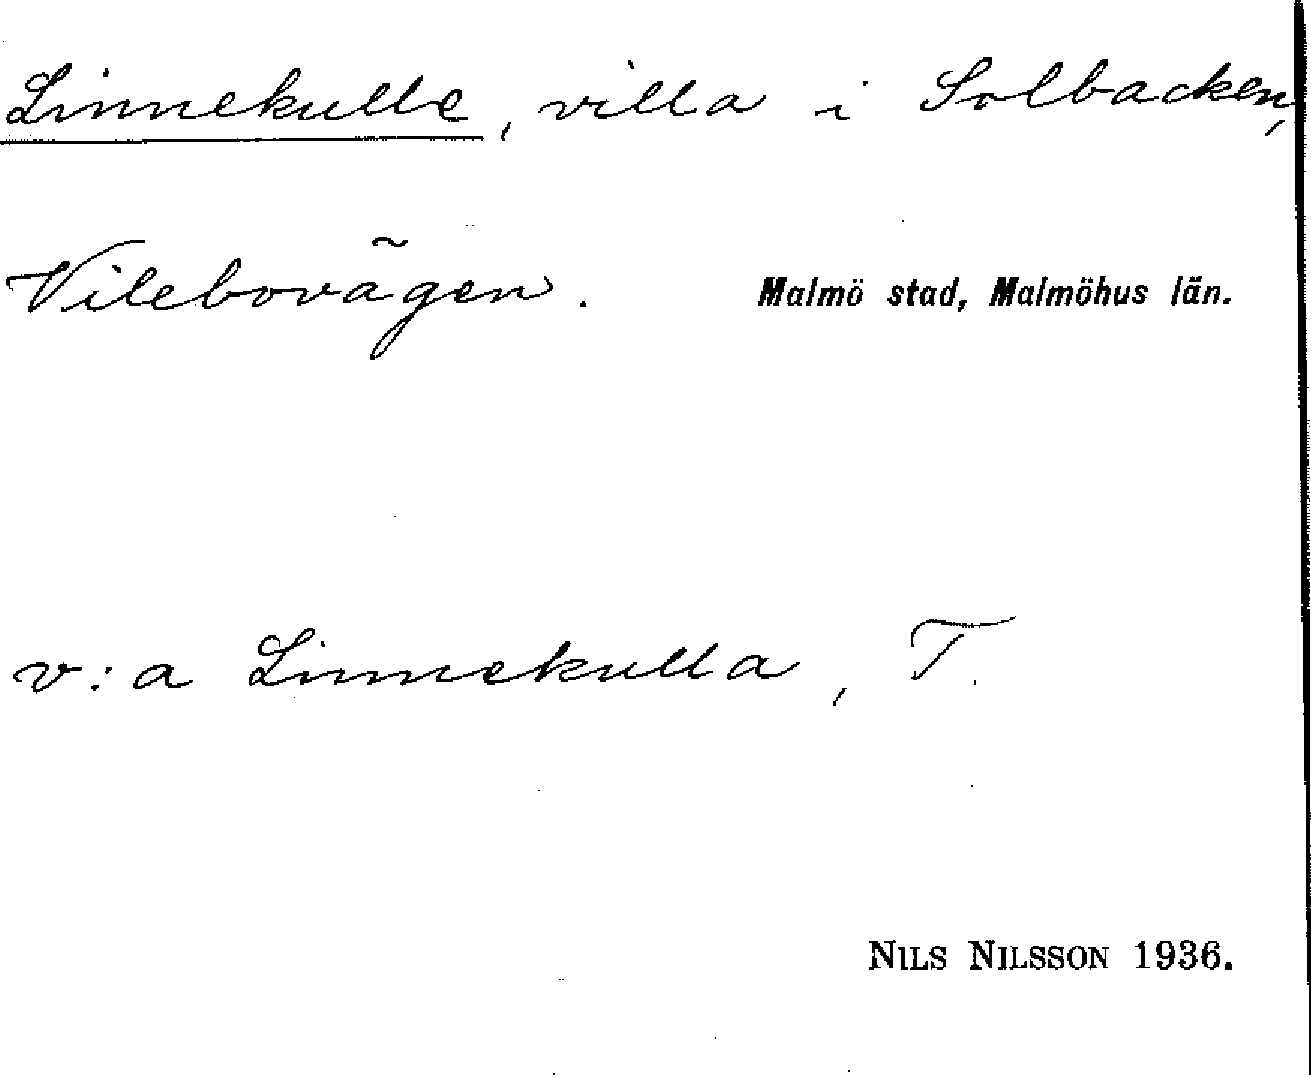 Linnekulle, villa i Solbacken,
Vilebovägen. Malmö stad, Malmöhus län.
v:a Linnekulla, T.
NILS NILSSON 1936.